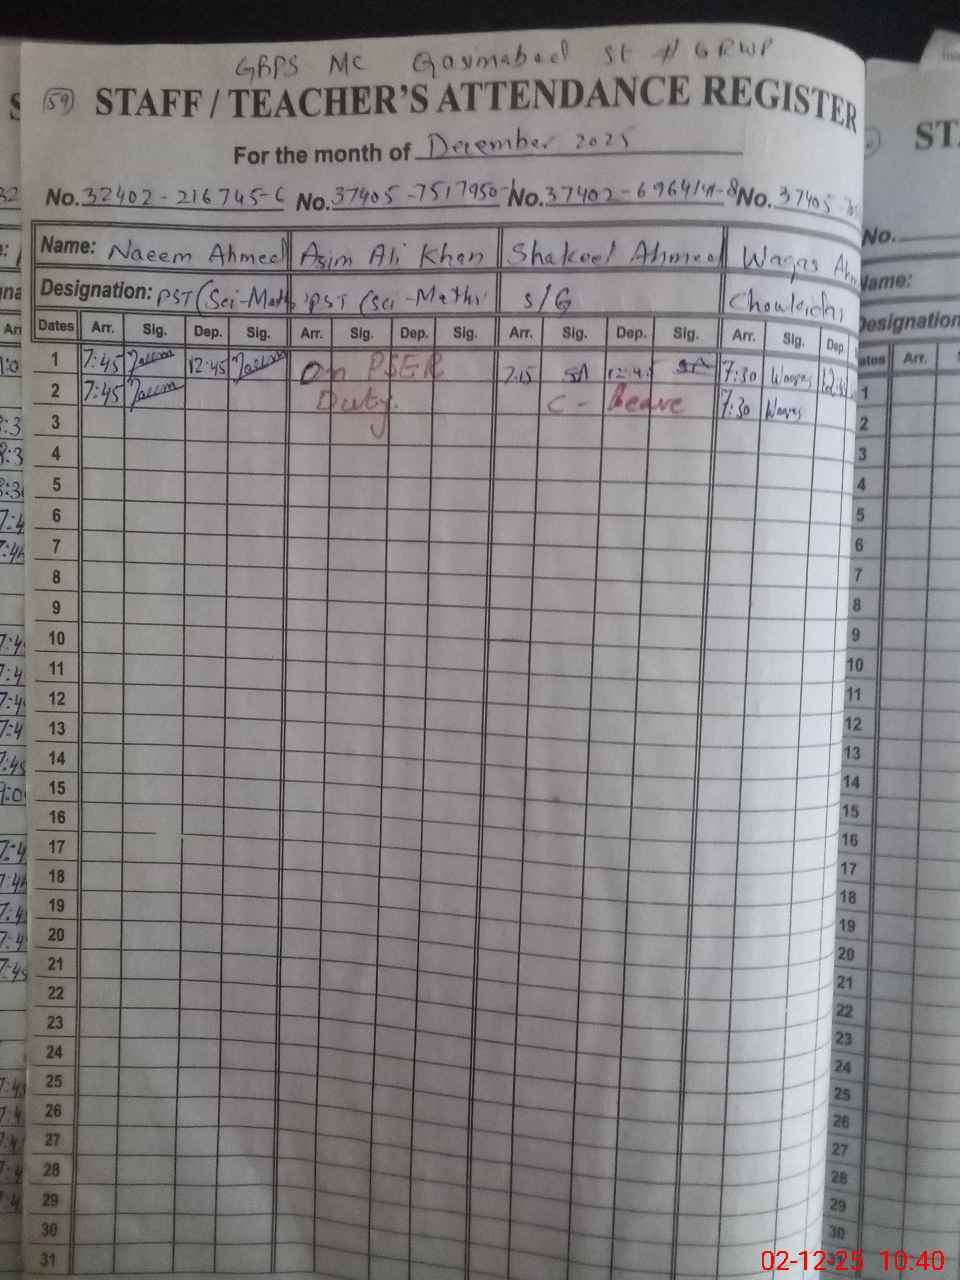 GBPS MC Qasimabad St # 6 RWP
59 STAFF / TEACHER'S ATTENDANCE REGISTER
For the month of December 2025
No. 32402-216745-6 No. 37405-7517950-1 No. 37402-6964141-8 No. 37405-
Name: Naeem Ahmed Asim Ali Khan Shakeel Ahmed Waqas Ahm
Designation: PST (Sci-Math PST (Sci-Math) S/G Chowkidar
Dates Arr. Sig. Dep. Sig. Arr. Sig. Dep. Sig. Arr. Sig. Dep. Sig. Arr. Sig. Dep.
1 7:45 Naeem 12:45 Naeem On PSER 7:15 SA 12:45 SA 7:30 Waqas 12:45
2 7:45 Naeem Duty. C - Leave 7:30 Waqas
3
4
5
6
7
8
9
10
11
12
13
14
15
16
17
18
19
20
21
22
23
24
25
26
27
28
29
30
31
ST
No.
Name:
Designation
ates Arr.
1
2
3
4
5
6
7
8
9
10
11
12
13
14
15
16
17
18
19
20
21
22
23
24
25
26
27
28
29
30
02-12-25 10:40